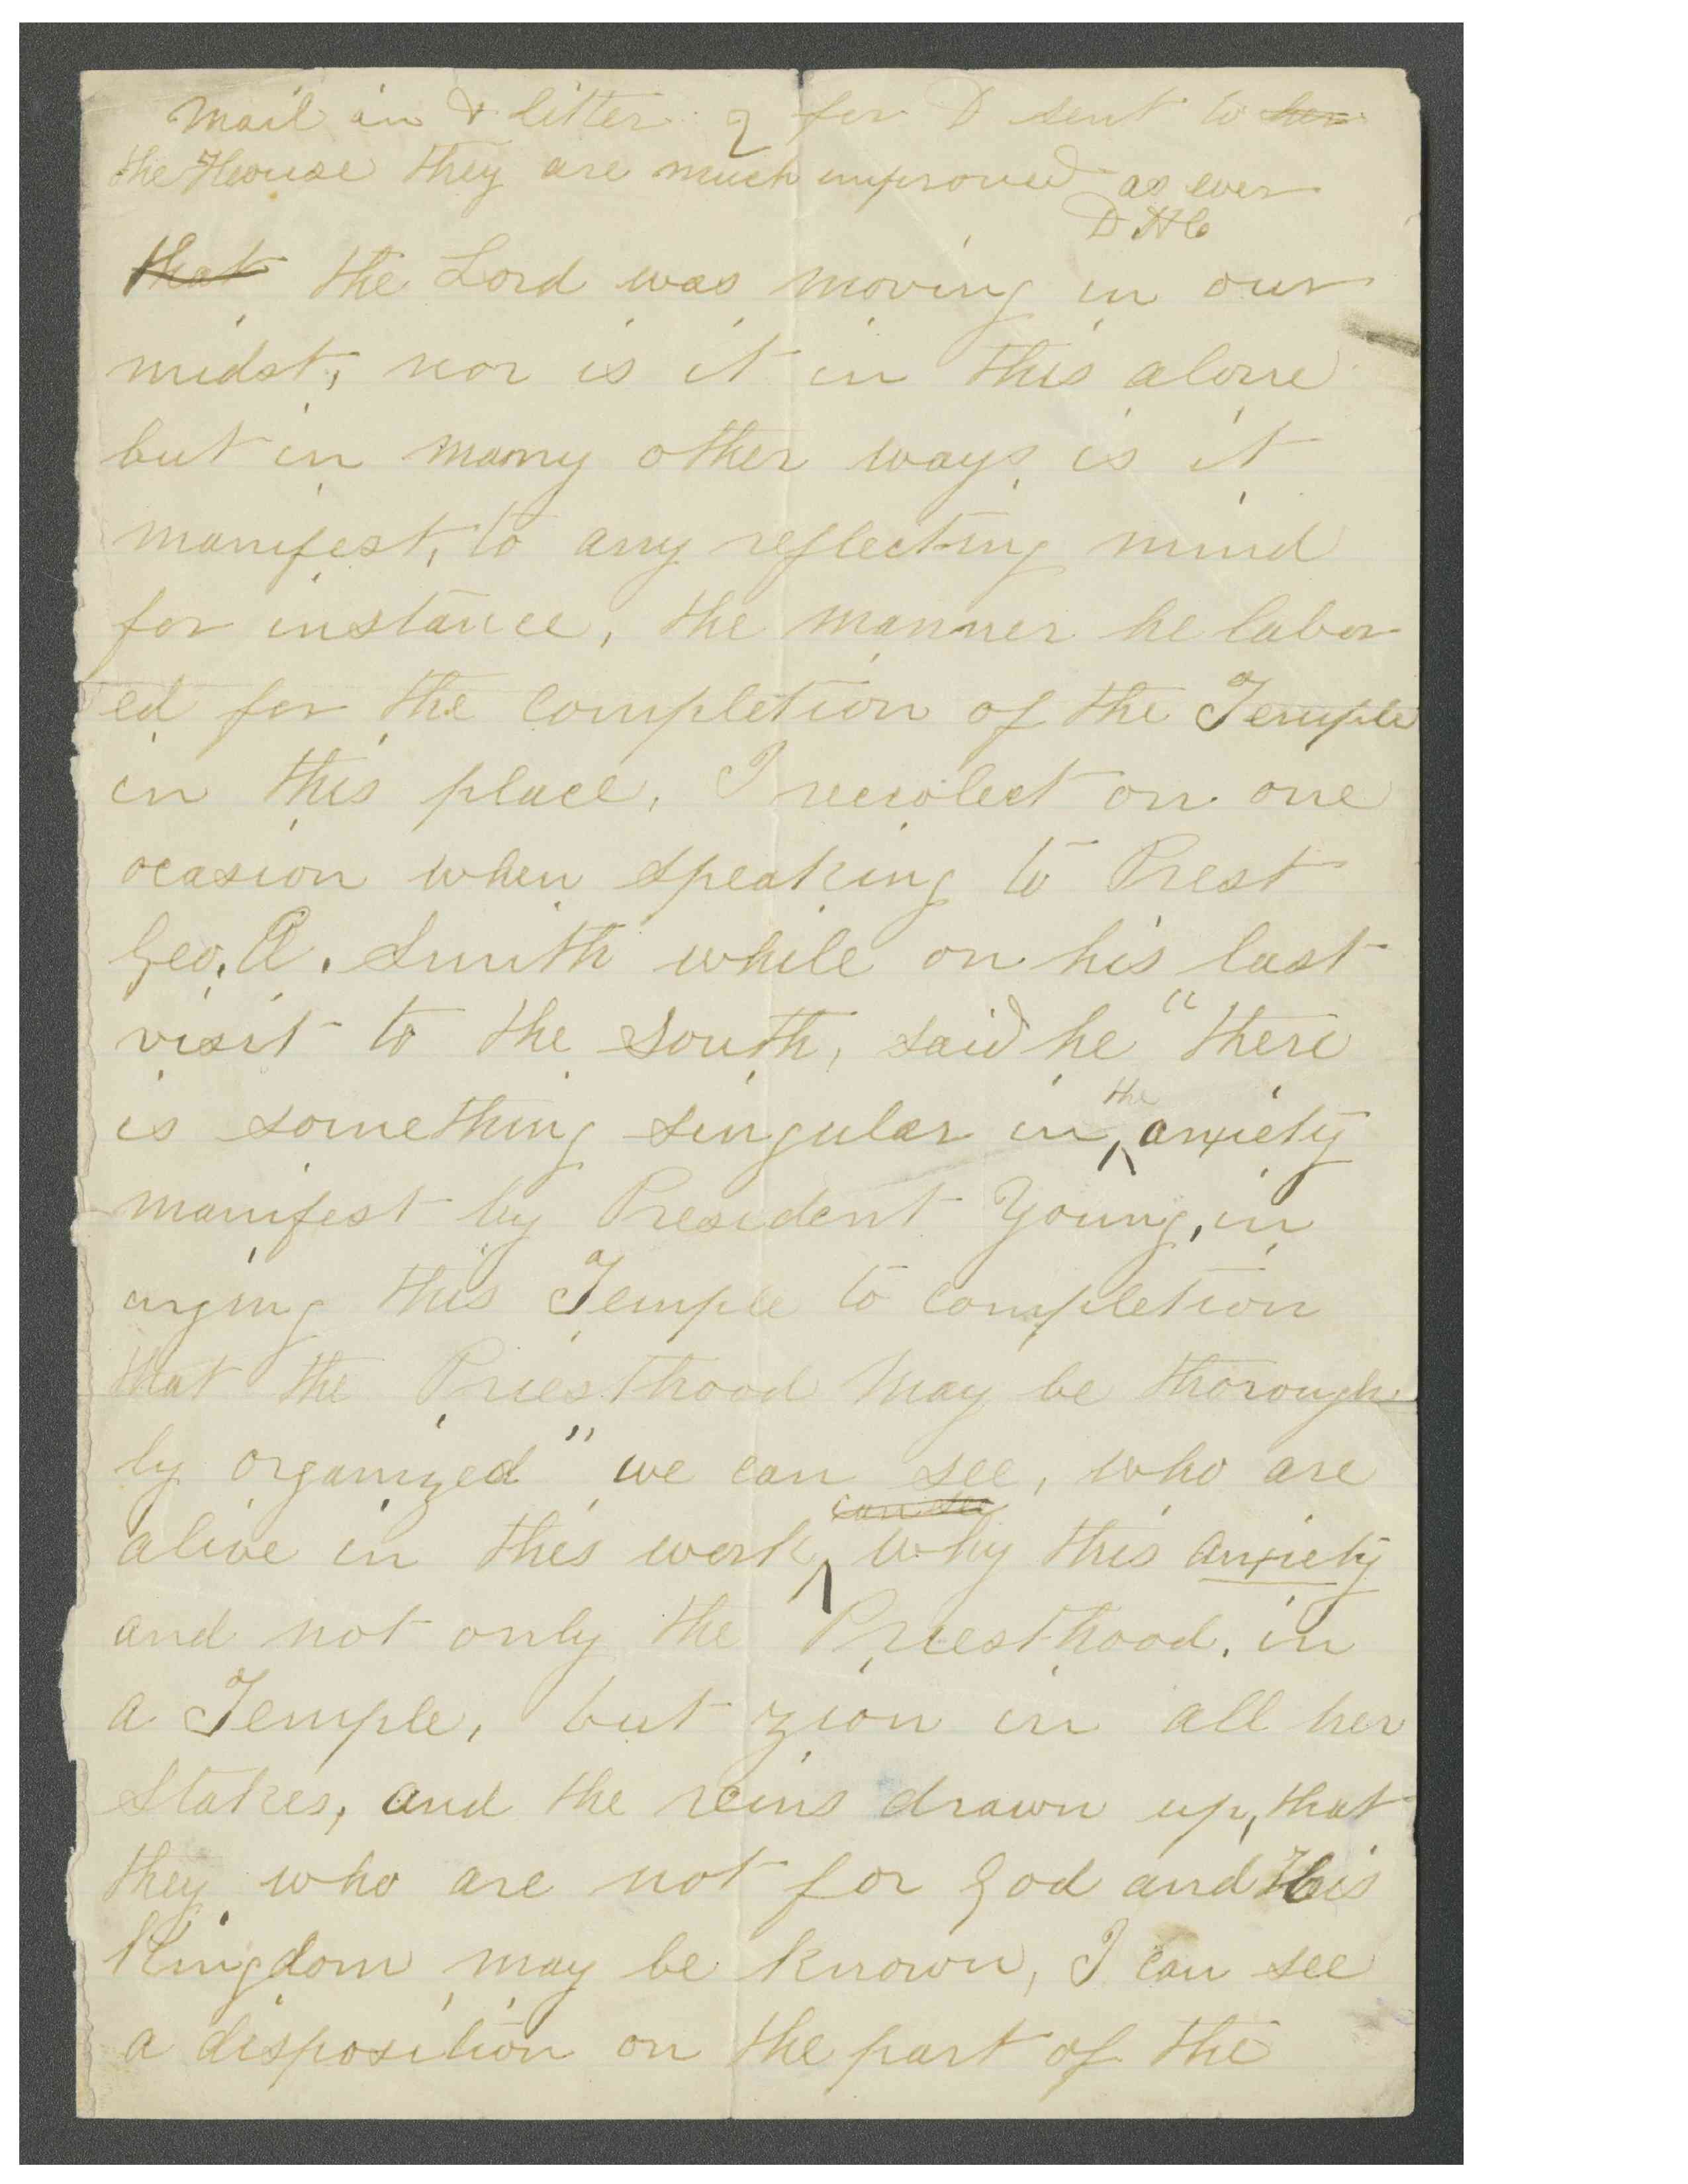 mail in & litter 2 for D sent to her
the House they are much improved as ever
D H C
that the Lord was moving in our
midst, nor is it in this alone
but in many other ways is it
manifest, to any reflecting mind
for instance, the manner he labor
ed for the completion of the Temple
in this place, I recolect on one
ocasion when speaking to Prest
Geo. A. Smith while on his last
visit to the South, said he "there
is something singular in the anxiety
manifest by President Young, in
urging this Temple to completion
that the Priesthood may be thorough
ly organized" we can see, who are
can see
alive in this work, why this anxiety
and not only the Priesthood, in
a Temple, but zion in all her
Stakes, and the reins drawn up, that
they who are not for God and His
Kingdom may be known, I can see
a disposition on the part of the